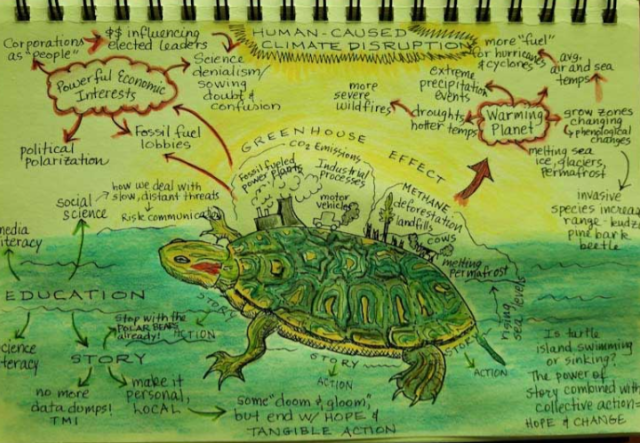 HUMAN-CAUSED
CLIMATE DISRUPTION
Corporations
as "people"
$$ influencing
elected leaders
Science
denialism/
sowing
doubt &
confusion
Powerful Economic
Interests
political
polarization
Fossil fuel
lobbies
more "fuel"
for hurricanes
& cyclones
avg.
air and sea
temps
extreme
precipitation
events
more
severe
wildfires
droughts
hotter temps
Warming
Planet
grow zones
changing
phenological
changes
melting sea
ice, glaciers,
permafrost
invasive
species increase
range - kudzu
pine bark
beetle
GREENHOUSE
EFFECT
CO2 Emissions
Fossil fueled
power plants
Industrial
processes
motor
vehicles
METHANE
deforestation
landfills
cows
melting
permafrost
social
science
how we deal with
slow, distant threats
Risk communication
media
literacy
EDUCATION
science
literacy
STORY
Stop with the
POLAR BEARS
already!
no more
data dumps!
TMI
make it
personal,
LOCAL
STORY
ACTION
STORY
ACTION
STORY
ACTION
some "doom & gloom",
but end w/ HOPE &
TANGIBLE ACTION
rising sea levels
Is turtle
island swimming
or sinking?
The power of
story combined with
collective action=
HOPE & CHANGE